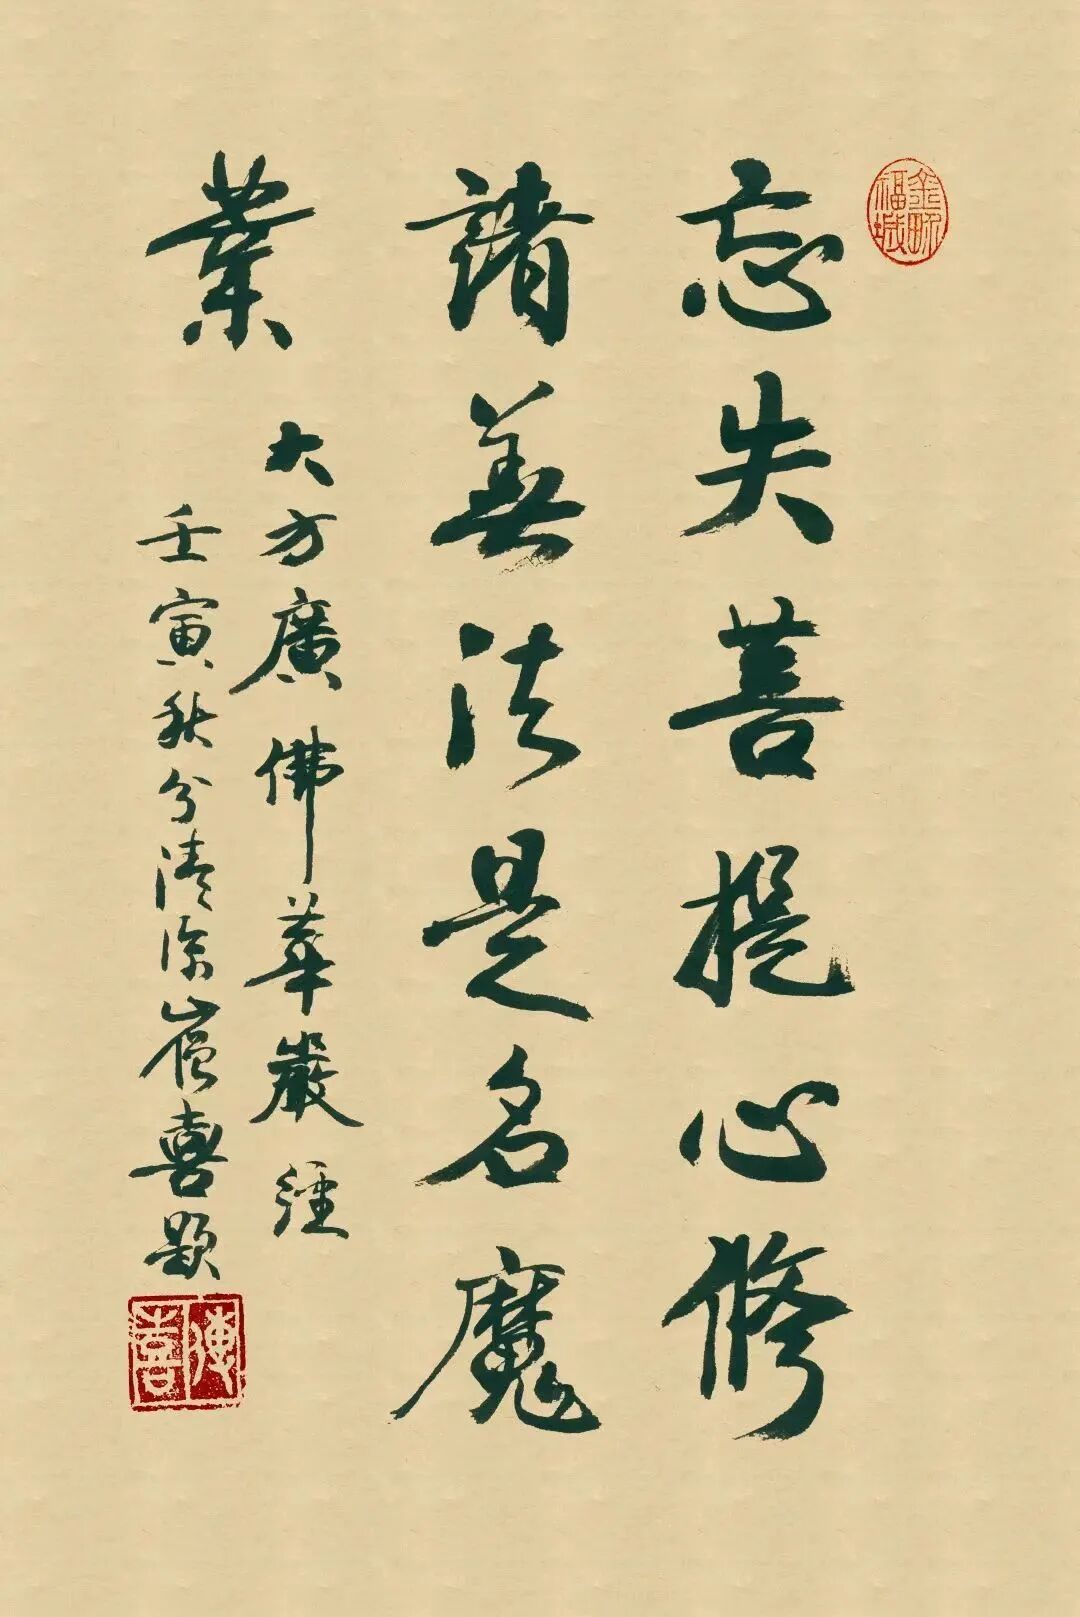 忘失菩提心修
諸善法是名魔
業
大方廣佛華嚴經
壬寅秋分清涼喜題
傳喜
福城